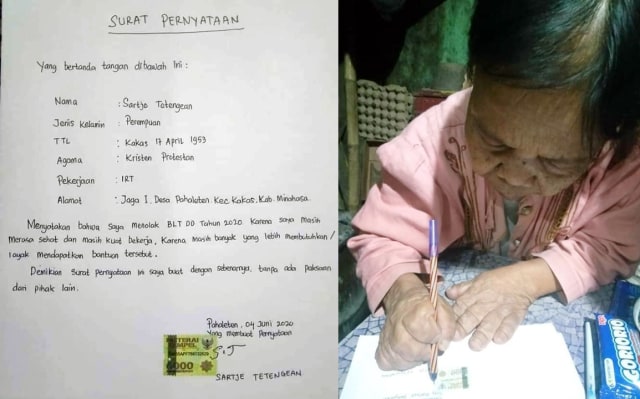 SURAT PERNYATAAN
Yang bertanda tangan dibawah ini :
Nama : Sartje Tetengean
Jenis Kelamin : Perempuan
TTL : Kakas 17 April 1953
Agama : Kristen Protestan
Pekerjaan : IRT
Alamat : Jaga I. Desa Pahaleten. Kec Kakas. Kab. Minahasa.
Menyatakan bahwa Saya Menolak BLT DD Tahun 2020. Karena saya Masih
Merasa sehat dan masih kuat bekerja, Karena masih banyak yang lebih membutuhkan /
layak mendapatkan bantuan tersebut.
Demikian Surat Pernyataan ini saya buat dengan sebenarnya, tanpa ada paksaan
dari pihak lain.
Pahaleten, 04 Juni 2020
Yang membuat Pernyataan
METERAI
TEMPEL
6000
S.T
SARTJE TETENGEAN
GORIORIO